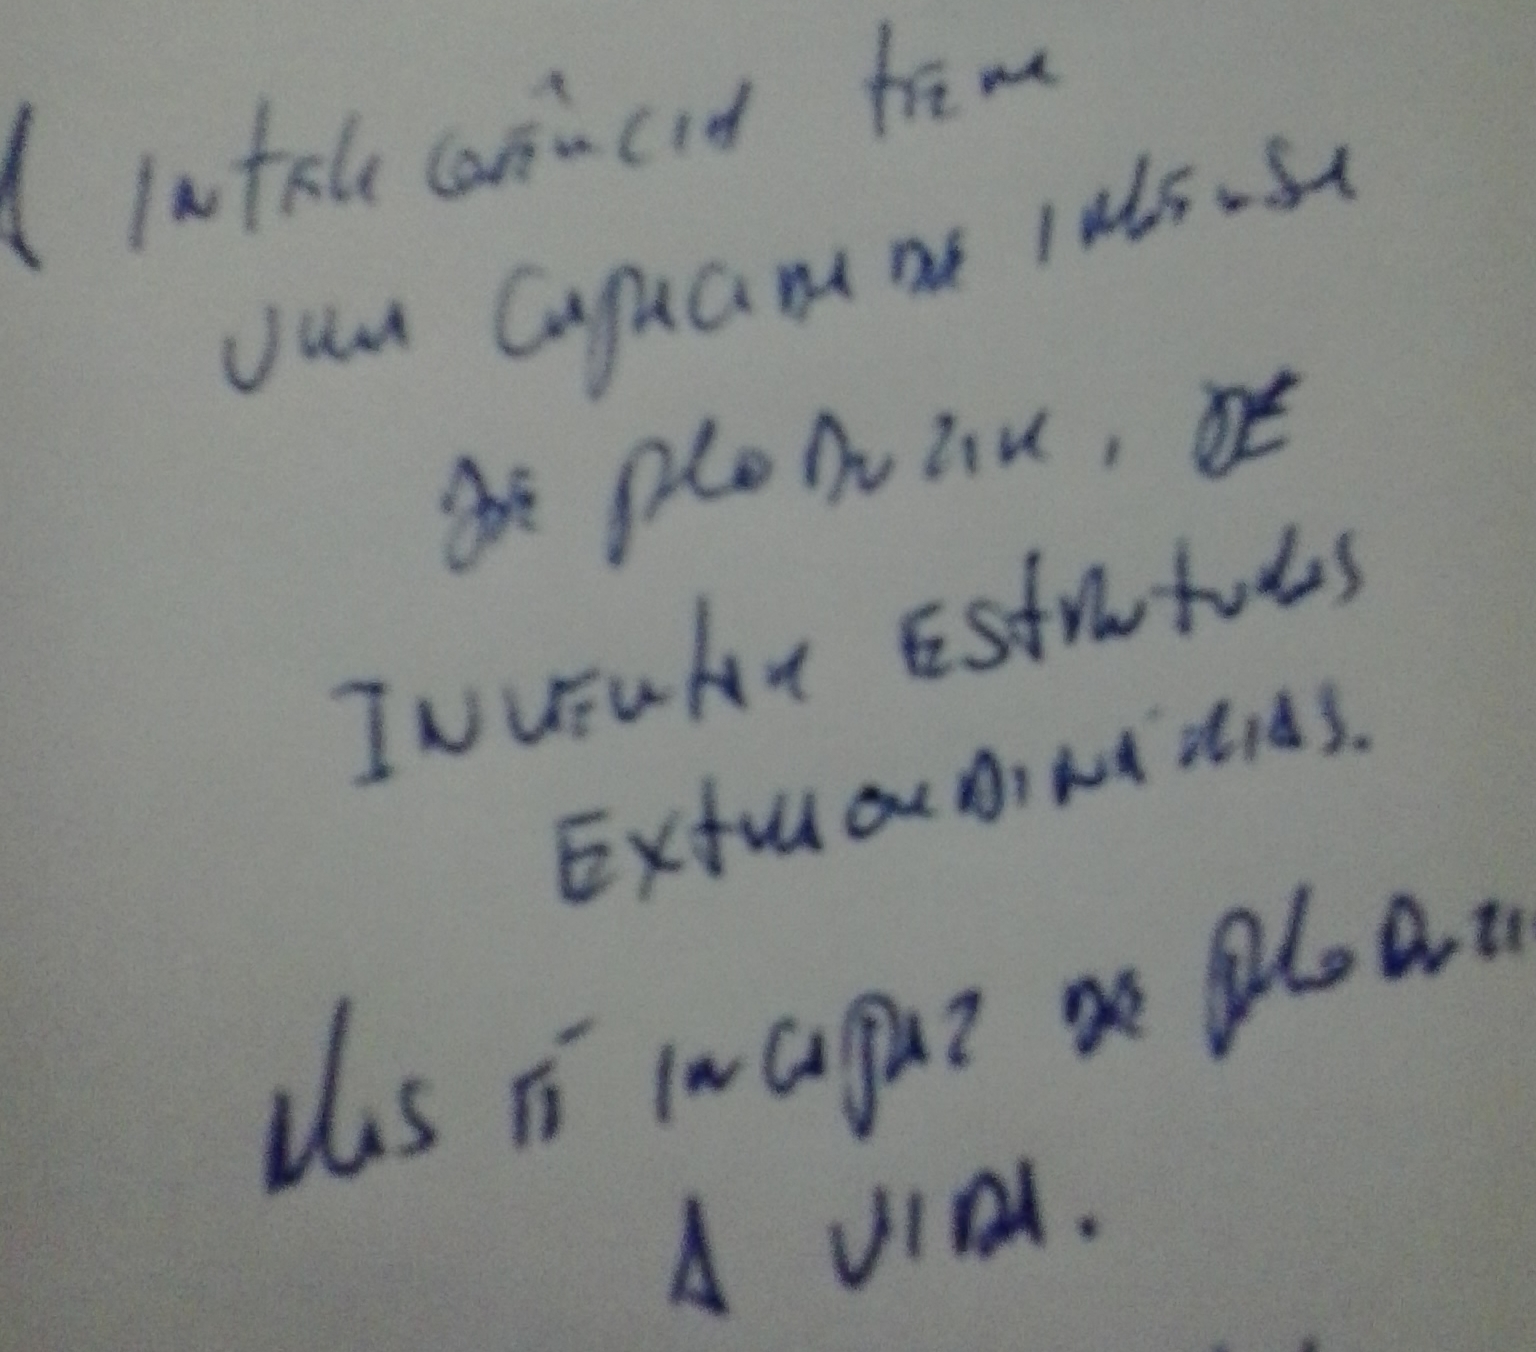 A inteligência tem
uma capacidade imensa
de produzir, de
inventar estruturas
extraordinárias.
Mas é incapaz de produzi
a vida.